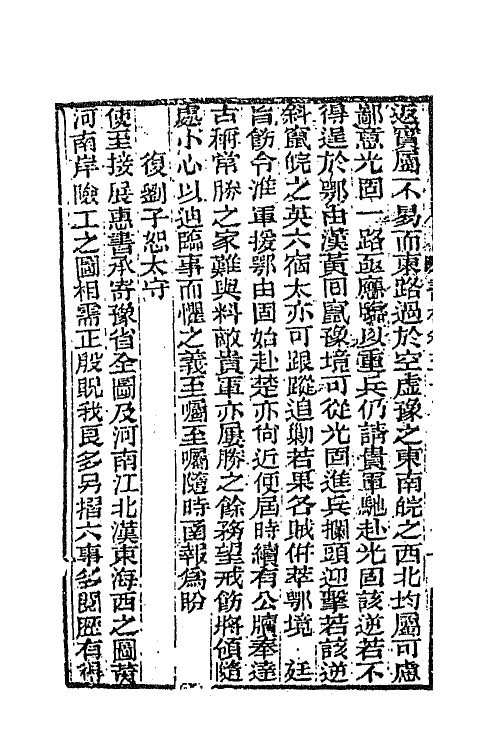 返實屬不易而東路過於空虛豫之東南皖之西北均屬可慮
鄙意光固一路亟應臨以重兵仍請貴軍馳赴光固該逆若不
得逞於鄂由漢黃回竄豫境可從光固進兵攔頭迎擊若該逆
斜竄皖之英六宿太亦可跟蹤追勦若果各賊倂萃鄂境 廷
旨飭令淮軍援鄂由固始赴楚亦尙近便屆時續有公牘奉達
古稱常勝之家難與料敵貴軍亦屢勝之餘務望戒飭將領隨
處小心以迪臨事而懼之義至囑至囑隨時函報爲盼
復劉子恕太守
使至接展惠書承寄豫省全圖及河南江北漢東海西之圖黃
河南岸險工之圖相需正殷貺我良多另摺六事多閱歷有得